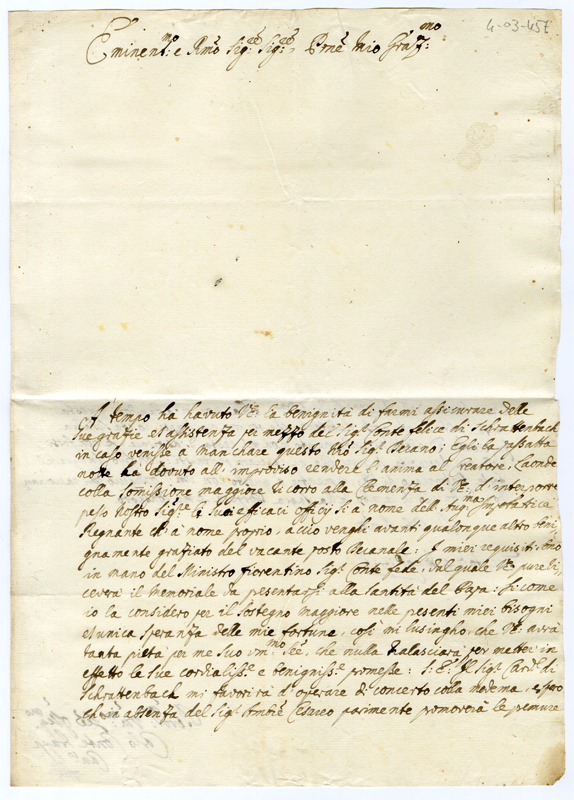 4-03-457
Eminen.mo e Rmo Sig.re Sig.re, Prne Mio Graz:mo
tempo ha havuto VE. la benignità di farmi assicurare delle
sue grazie et assistenza per mezzo del Sig.r Conte felice di Schrattenbach
in caso venisse à manchare questo Sig.r Decano; Egli la passatta
notte ha dovuto all'improviso rendere l'anima al Creatore, Laonde
colla somissione maggiore ricorro alla Clemenza di VE. d'interporre
nostro Sig.re li suoi efficaci officij si à nome dell' Aug.ma Imperatrice
Regnante ch' à nome proprio, acciò venghi avanti qualonque altro beni
gnamente graziato del vacante posto Decanale: I miei requisiti sono
in mano del Ministro fiorentino Sig.r Conte fede, dal quale VE. pure ri,
ceverà il Memoriale da presentarsi alla Santità del Papa: Si come
io la considero per il sostegno maggiore nelle presenti miei bisogni
et unica speranza delle mie fortune, così mi lusingho, che VE. avrà
tanta pietà per me suo che nulla tralasciarà per metter in
effetto le sue cordialiss.e e benigniss.e promesse: S: E. Il Sig.r Card.l di
Schrattenbach mi favorirà d'operare di concerto colla medema, e spero
ch' in absenza del Sig.r Cesareo parimente promoverà le premure